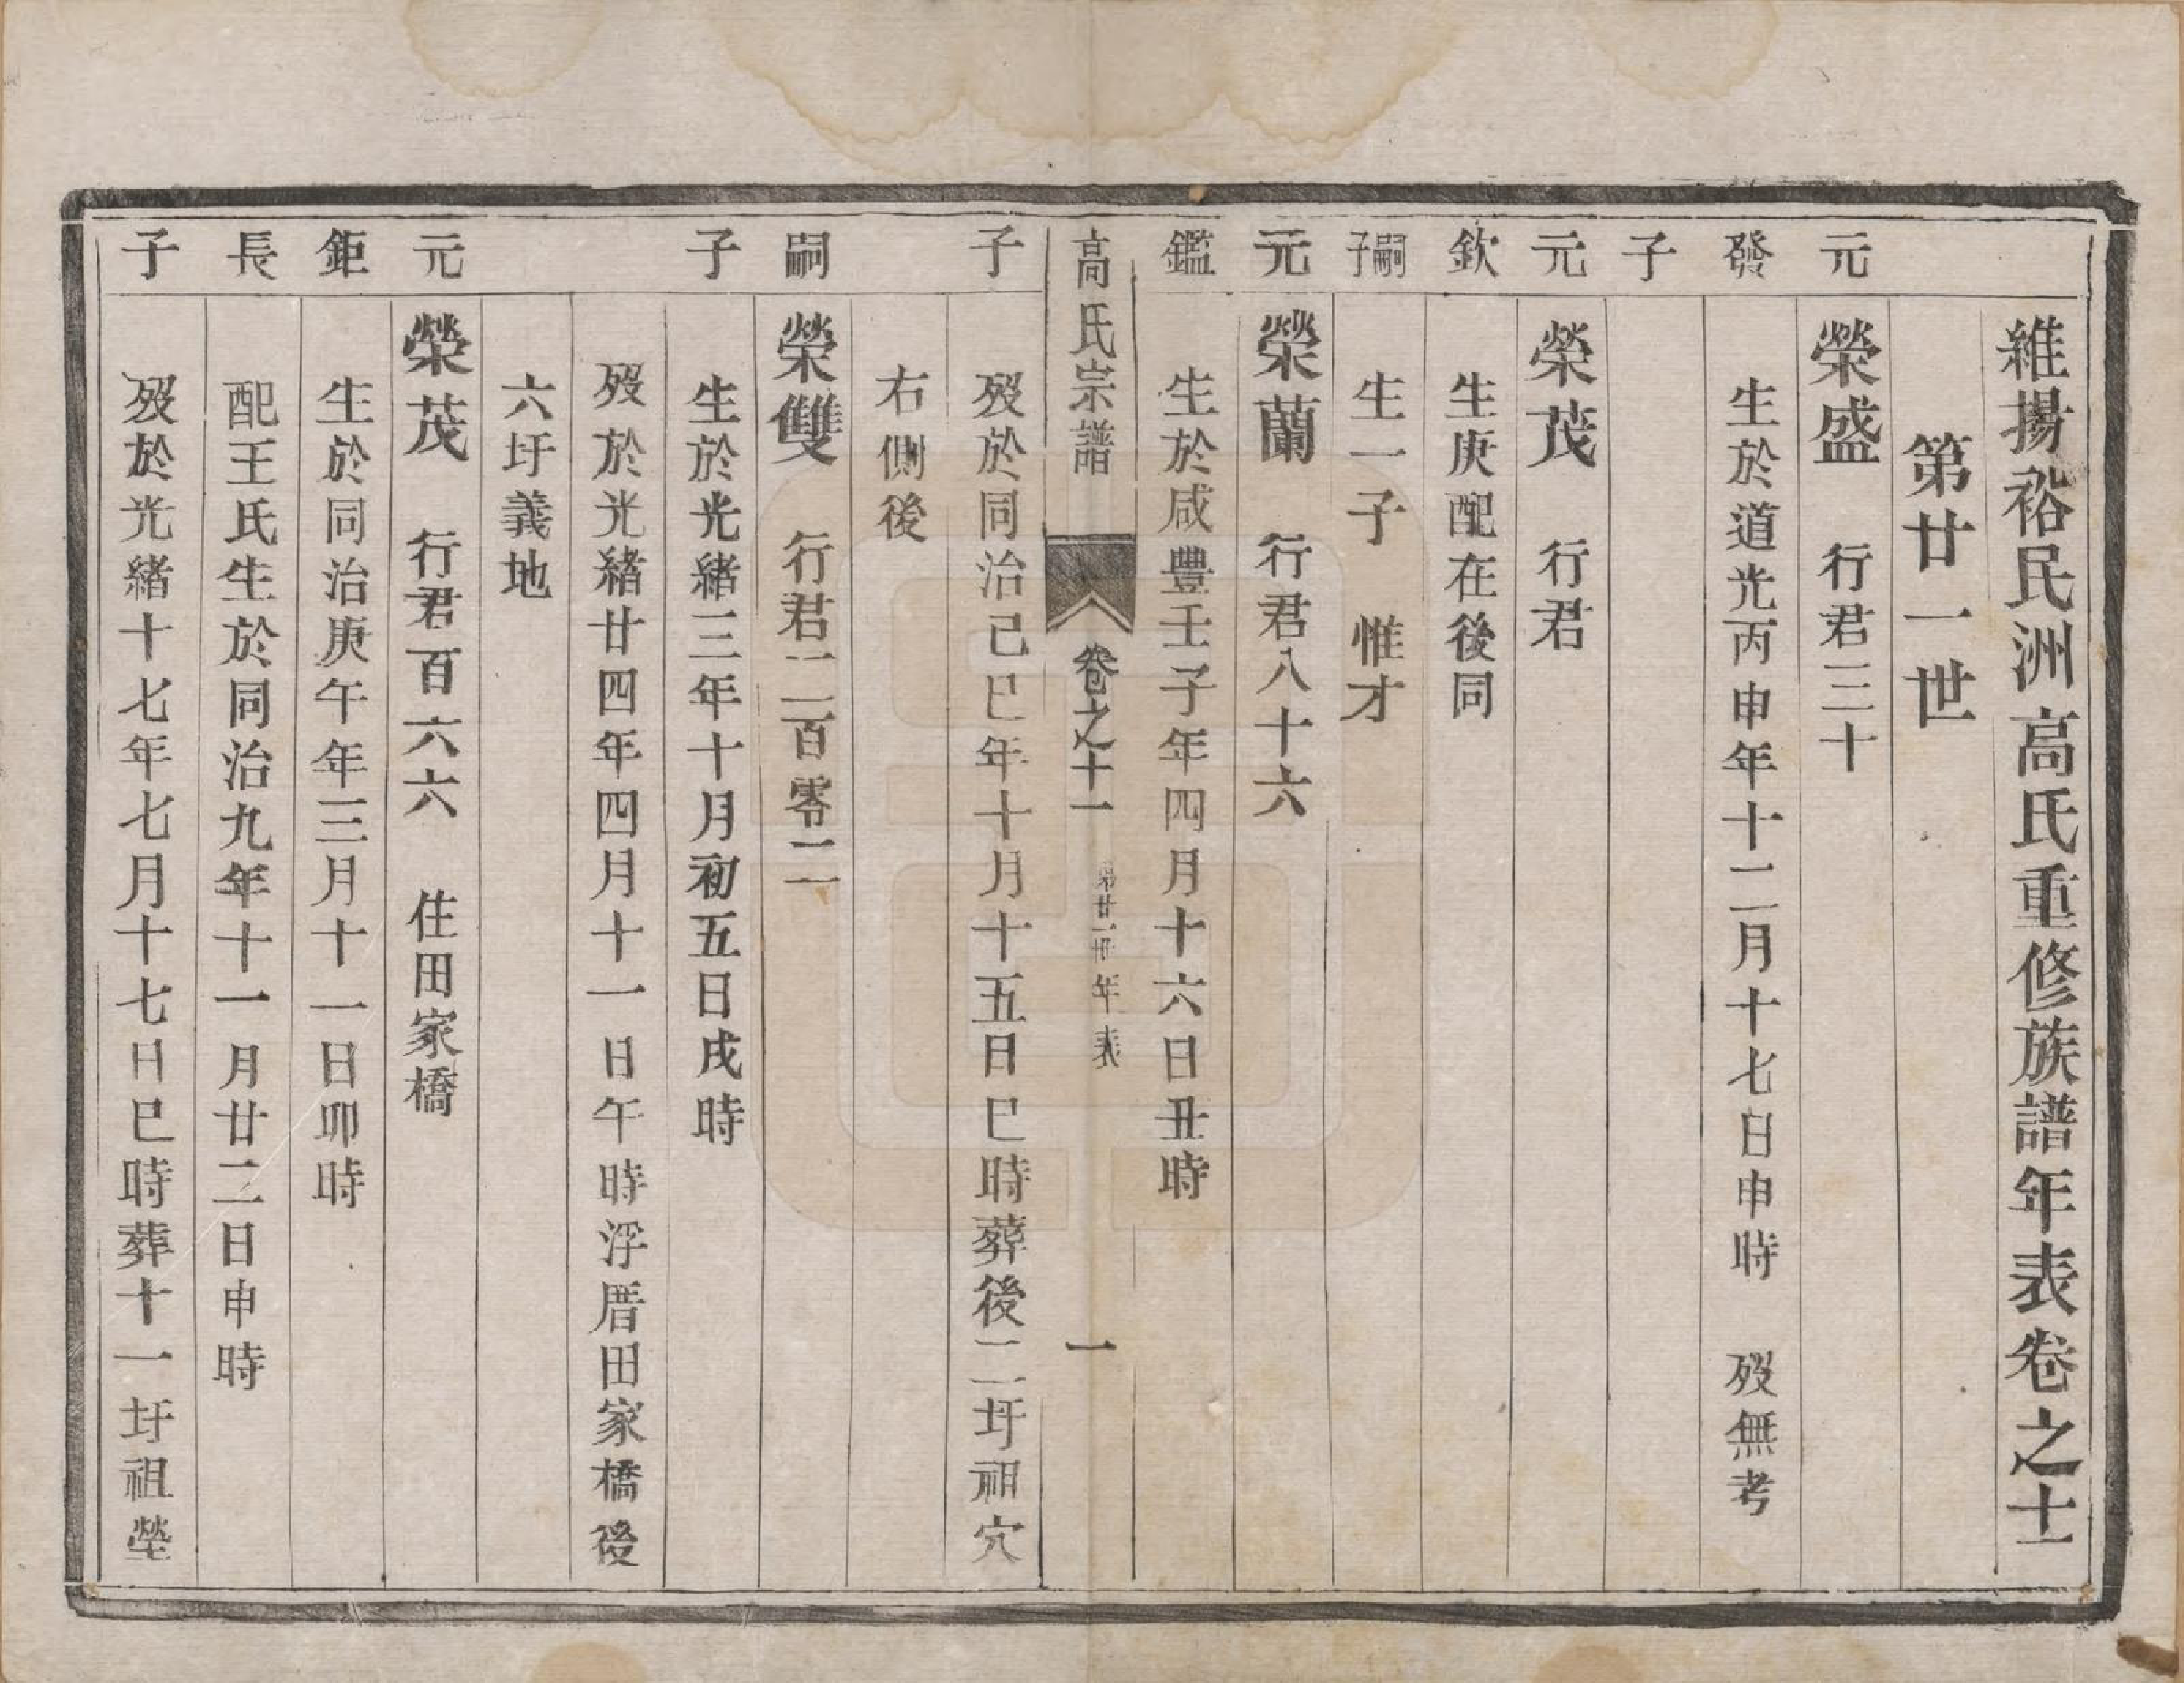 維揚裕民洲高氏重修族譜年表卷之十一
第廿一世
元 榮盛 行君三十
發 生於道光丙申年十二月十七日申時 歿無考
子
元 榮茂 行君
欽 生庚配在後同
嗣子 生一子 惟才
元 榮蘭 行君八十六
鑑 生於咸豐壬子年四月十六日丑時
高氏宗譜 卷之十一 第廿一世年表 一
子 歿於同治己巳年十月十五日巳時葬後二圩祖穴
右側後
嗣 榮雙 行君二百零二
子 生於光緒三年十月初五日戌時
歿於光緒廿四年四月十一日午時浮厝田家橋後
六圩義地
元 榮茂 行君百六六 住田家橋
鉅 生於同治庚午年三月十一日卯時
長 配王氏生於同治九年十一月廿二日申時
子 歿於光緒十七年七月十七日巳時葬十一圩祖塋